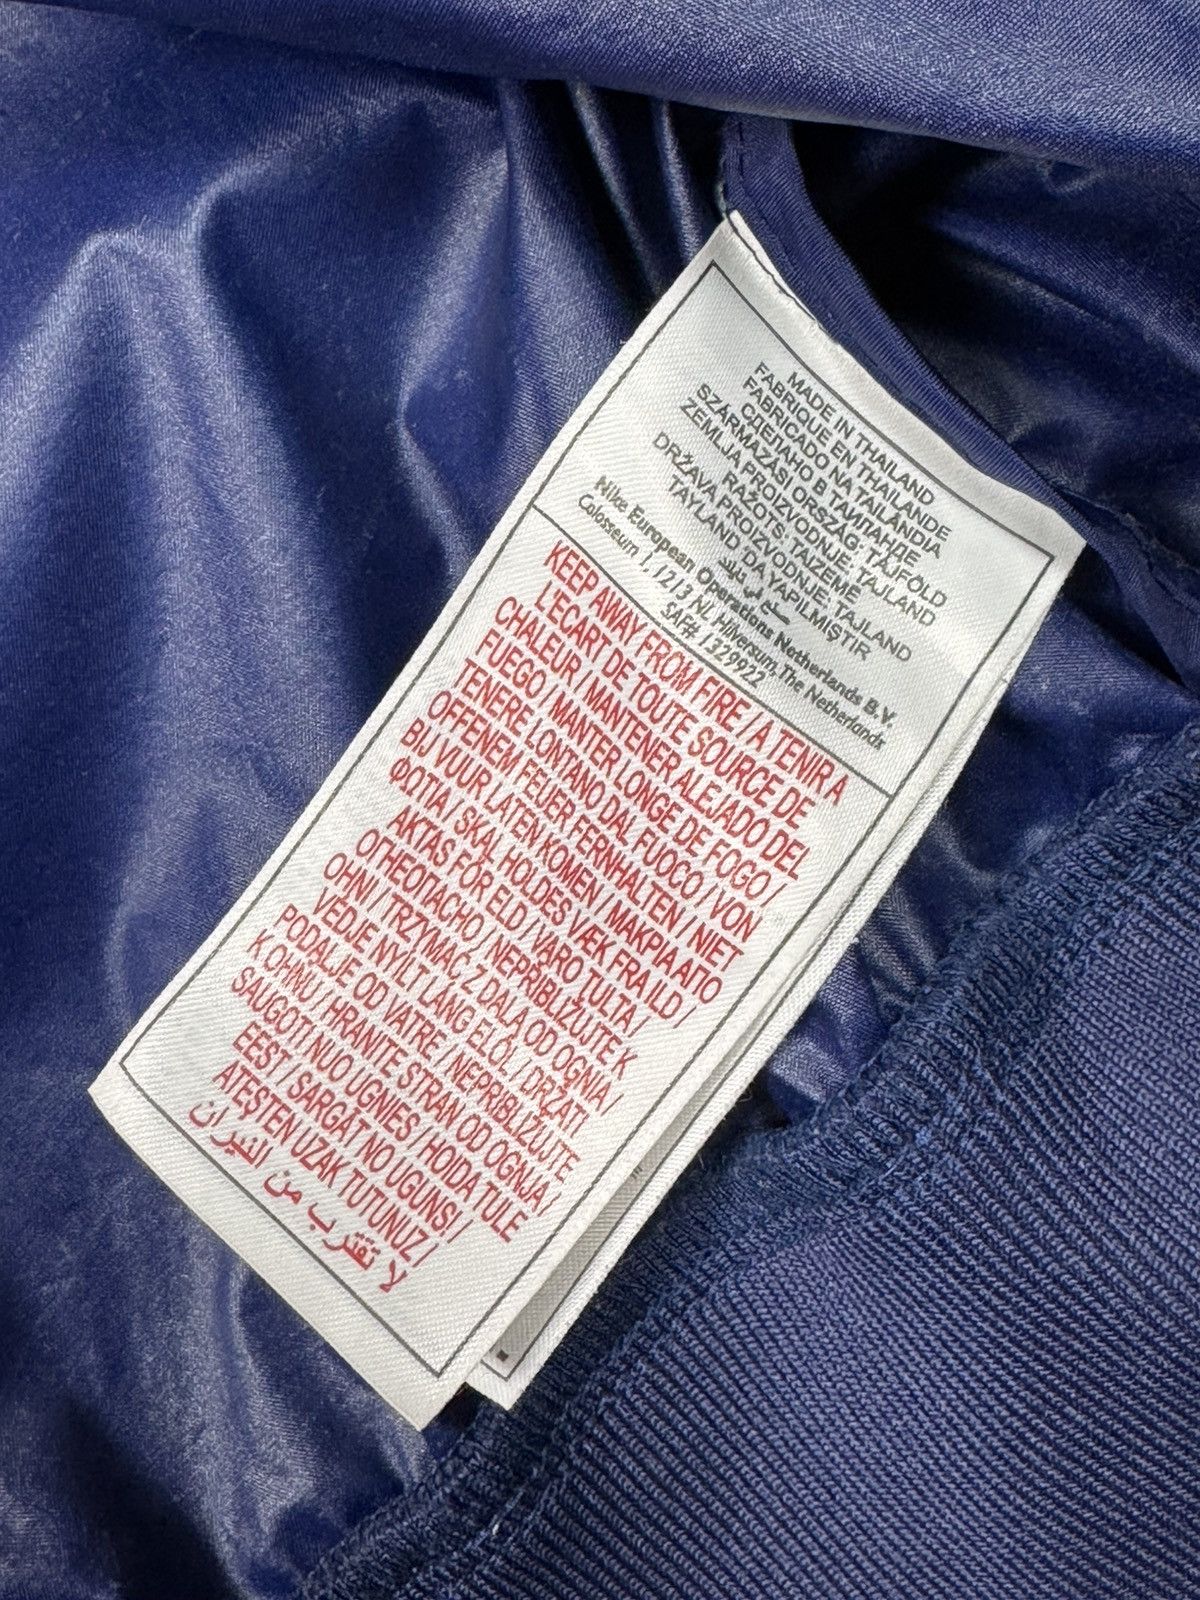 MADE IN THAILAND
FABRIQUE EN THAÏLANDE
FABRICADO NA TAILÂNDIA
СДЕЛАНО В ТАИЛАНДЕ
SZÁRMAZÁSI ORSZÁG: TÁJFÖLD
ZEMLJA PROIZVODNJE: TAJLAND
RAŽOTS: TAIZEMĒ
DRŽAVA PROIZVODNJE: TAJLAND
TAYLAND 'DA YAPILMIŞTIR
صنع في تايلاند
Nike European Operations Netherlands B.V.
Colosseum 1, 1213 NL Hilversum, The Netherlands
SAF# 1329922
KEEP AWAY FROM FIRE / A TENIR A
L'ECART DE TOUTE SOURCE DE
CHALEUR / MANTENER ALEJADO DEL
FUEGO / MANTER LONGE DE FOGO /
TENERE LONTANO DAL FUOCO / VON
OFFENEM FEUER FERNHALTEN / NIET
BIJ VUUR LATEN KOMEN / ΜΑΚΡΙΑ ΑΠΟ
ΦΩΤΙΑ / SKAL HOLDES VÆK FRA ILD /
AKTAS FÖR ELD / VARO TULTA /
ОГНЕОПАСНО / NEPŘIBLIŽUJTE K
OHNI / TRZYMAĆ Z DALA OD OGNIA /
VÉDJE NYÍLT LÁNG ELŐL / DRŽATI
PODALJE OD VATRE / NEPRIBLIŽUJTE
K OHŇU / HRANITE STRAN OD OGNJA /
SAUGOTI NUO UGNIES / HOIDA TULE
EEST / SARGĀT NO UGUNS! /
ATEŞTEN UZAK TUTUNUZ /
لا تقترب من النيران